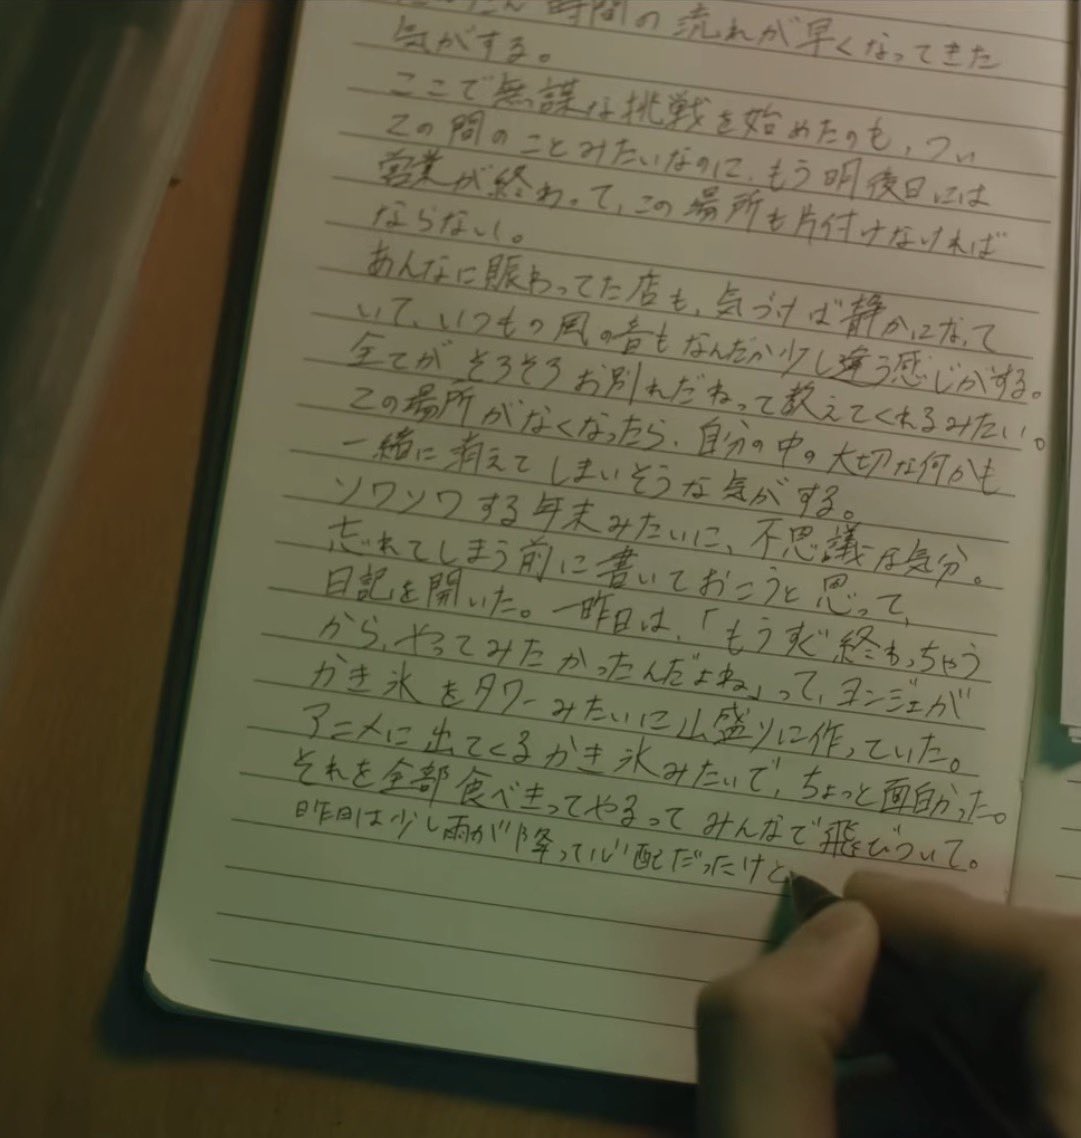 だんだん時間の流れが早くなってきた
気がする。
ここで無謀な挑戦を始めたのも、つい
この間のことみたいなのに、もう明後日には
営業が終わって、この場所も片付けなければ
ならない。
あんなに賑わってた店も、気づけば静かになって
いて、いつもの風の音もなんだか少し違う感じがする。
全てがそろそろお別れだねって教えてくれるみたい。
この場所がなくなったら、自分の中の大切な何かも
一緒に消えてしまいそうな気がする。
ソワソワする年末みたいに、不思議な気分。
忘れてしまう前に書いておこうと思って、
日記を開いた。一昨日は、「もうすぐ終わっちゃう
から、やってみたかったんだよね」って、ヨンジェが
かき氷をタワーみたいに山盛りに作っていた。
アニメに出てくるかき氷みたいで、ちょっと面白かった。
それを全部食べきってやるってみんなで飛びついて。
昨日は少し雨が降って心配だったけど